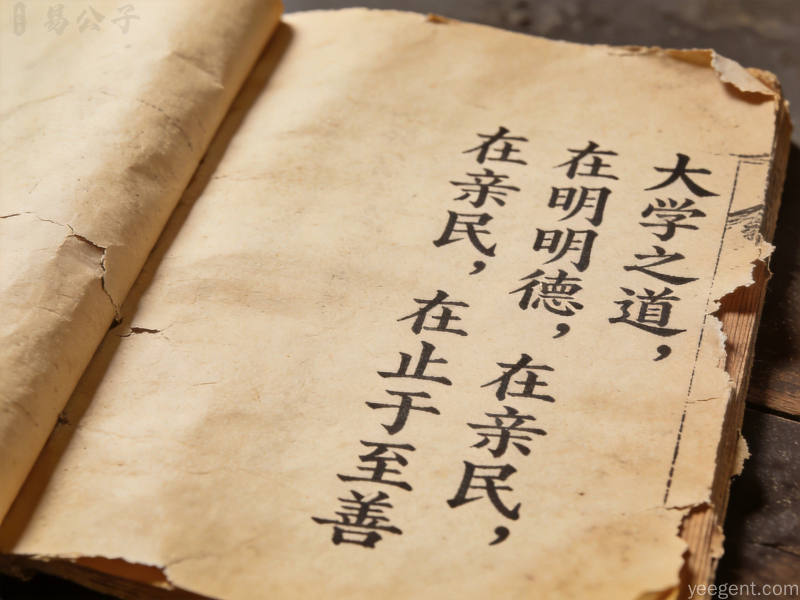 大学之道，
在明明德，在亲民，
在亲民，在止于至善
易公子
yeegent.com